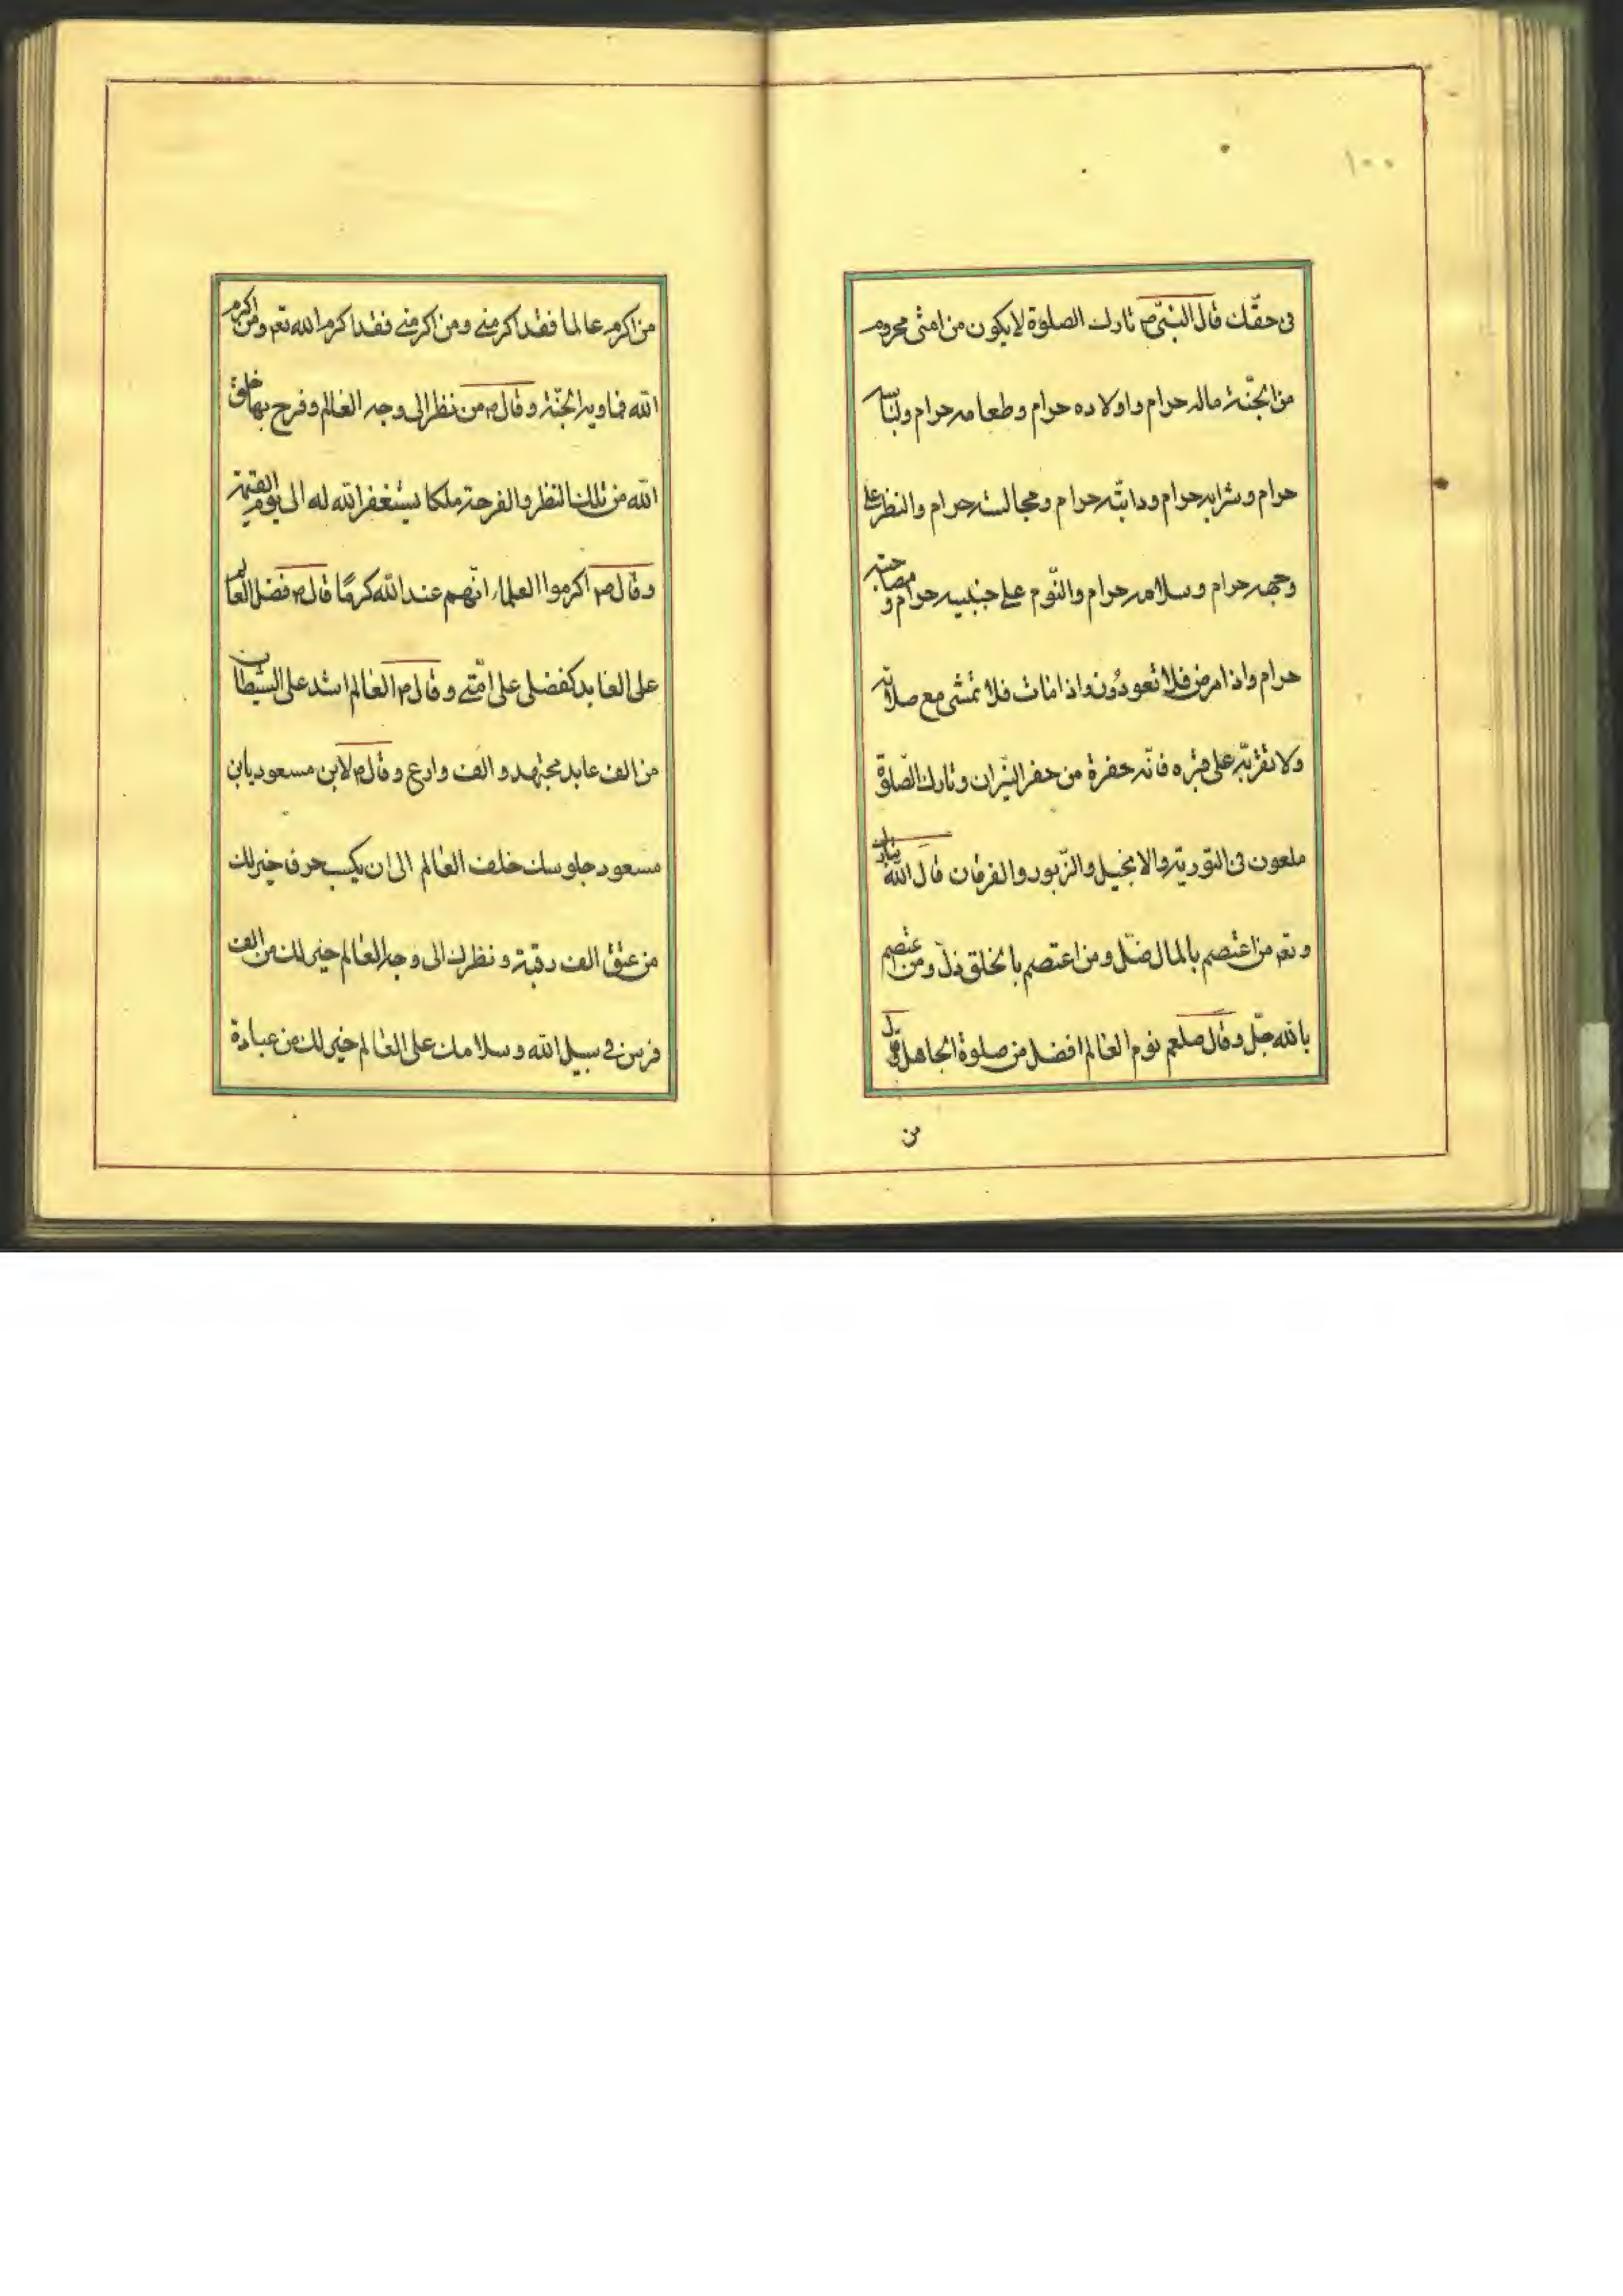 ١٠٠
فى حقّك قال النبىّ ص تارك الصلوة لا يكون من امتى محروم
من الجنّة ماله حرام واولاده حرام وطعامه حرام ولباسه
حرام وشرابه حرام ودابّته حرام ومجالسته حرام والنظر على
وجهه حرام وسلامه حرام والنّوم على جنبيه حرام ومصاحبته
حرام واذا مرض فلا تعودُونه واذا مات فلا تمشى مع صلاته
ولا تقربّه على قبره فانّه حفرة من حفر النيّران وتارك الصّلوة
ملعون فى التورية والانجيل والزّبور والفرقان قال الله تبارك
و تعم من اعتصم بالمال ضلّ ومن اعتصم بالخلق ذلّ ومن اعتصم
بالله جلّ وقال صلعم نوم العالم افضل من صلوة الجاهل
من
من اكرم عالما فقد اكرمنى ومن اكرمنى فقد اكرم الله تعم ومن اكرم
الله فماويه الجنّة وقال ص من نظر الى وجه العالم وفرح بها خلق
الله من تلك النظر والفرحة ملكا يستغفر الله له الى يوم القيمة
وقال ص اكرموا العلماء انّهم عند الله كرمًا قال ص فضل العالم
على العابد كفضلى على امّتى وقال ص العالم اشد على الشيطان
من الف عابد مجتهد و الف وادع وقال ص لابن مسعود يابن
مسعود جلوسك خلف العالم الى ان يكسب حرف خير لك
من عتق الف رقبة ونظرك الى وجه العالم خير لك من الف
فرس فى سبيل الله وسلامك على العالم خير لك من عبادة